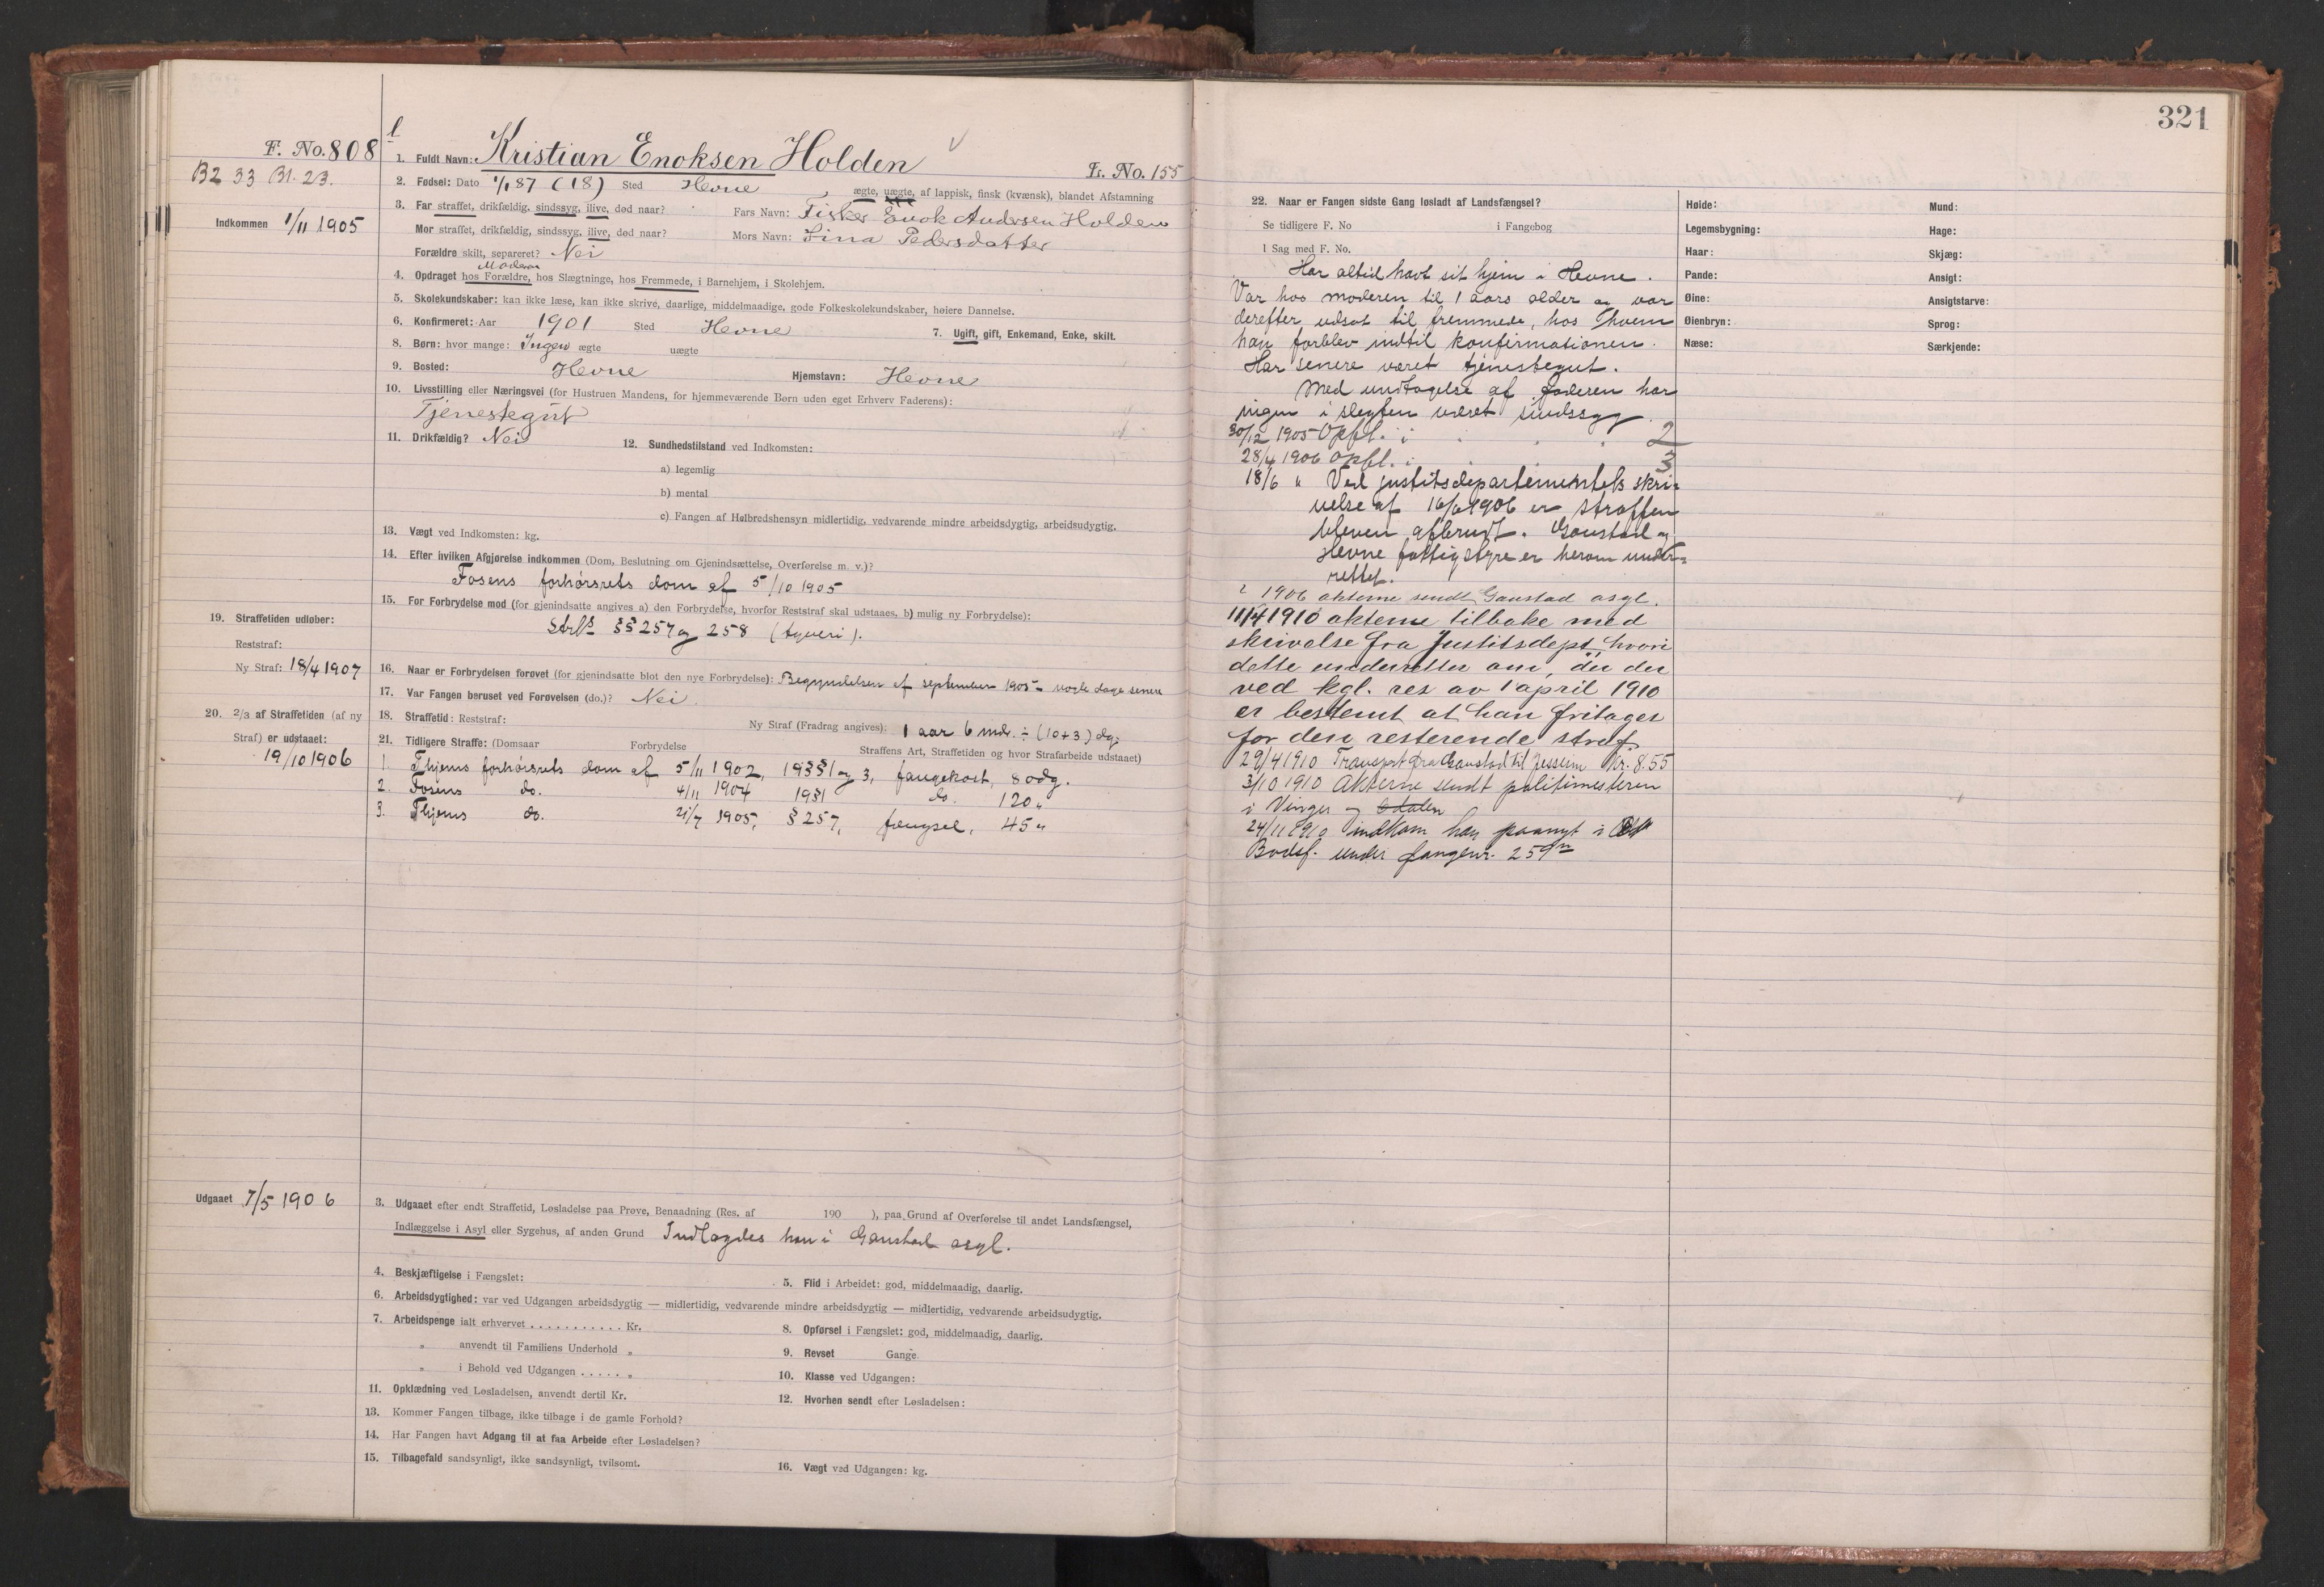 321
F. No. 808
B2 33 Bl. 23.
Indkommen 1/11 1905
1. Fuldt Navn: Kristian Enoksen Holden
L. No. 155
2. Fødsel: Dato 1/1 87 (18) Sted Hevne, ægte, uægte, af lappisk, finsk (kvænsk), blandet Afstamning
3. Far straffet, drikfældig, sindssyg, ilive, død naar? Fars Navn: Fisker Enok Andersen Holden
Mor straffet, drikfældig, sindssyg, ilive, død naar? Mors Navn: Sina Pedersdatter
Forældre skilt, separeret? Nei
Moderen
4. Opdraget hos Forældre, hos Slægtninge, hos Fremmede, i Barnehjem, i Skolehjem.
5. Skolekundskaber: kan ikke læse, kan ikke skrive, daarlige, middelmaadige, gode Folkeskolekundskaber, høiere Dannelse.
6. Konfirmeret: Aar 1901 Sted Hevne 7. Ugift, gift, Enkemand, Enke, skilt.
8. Børn: hvor mange: Ingen ægte uægte
9. Bosted: Hevne Hjemstavn: Hevne
10. Livsstilling eller Næringsvei (for Hustruen Mandens, for hjemmeværende Børn uden eget Erhverv Faderens):
Tjenestegut
11. Drikfældig? Nei 12. Sundhedstilstand ved Indkomsten:
a) legemlig
b) mental
c) Fangen af Helbredshensyn midlertidig, vedvarende mindre arbeidsdygtig, arbeidsudygtig.
13. Vægt ved Indkomsten: kg.
14. Efter hvilken Afgjørelse indkommen (Dom, Beslutning om Gjenindsættelse, Overførelse m. v.)?
Fosens forhørsrets dom af 5/10 1905
15. For Forbrydelse mod (for gjenindsatte angives a) den Forbrydelse, hvorfor Reststraf skal udstaaes, b) mulig ny Forbrydelse):
Strl§ §§ 257 og 258 (tyveri).
19. Straffetiden udløber:
Reststraf:
Ny Straf: 18/4 1907
16. Naar er Forbrydelsen forøvet (for gjenindsatte blot den nye Forbrydelse): Begyndelsen af september 1905 – nogle dage senere
17. Var Fangen beruset ved Forøvelsen (do.)? Nei.
20. 2/3 af Straffetiden (af ny
Straf) er udstaaet:
19/10 1906
18. Straffetid: Reststraf: Ny Straf (Fradrag angives): 1 aar 6 mdr. ÷ (10+3) dg.
21. Tidligere Straffe: (Domsaar Forbrydelse Straffens Art, Straffetiden og hvor Strafarbeide udstaaet)
1. Thjems forhørsrets dom af 5/11 1902, 19§§1 og 3, fangekost, 8 odg.
2. Fosens do. 4/11 1904 19§1 do. 120 "
3. Thjems do. 21/7 1905, § 257, fængsel, 45 "
Udgaaet 7/5 1906
3. Udgaaet efter endt Straffetid, Løsladelse paa Prøve, Benaadning (Res. af 190 ), paa Grund af Overførelse til andet Landsfængsel,
Indlæggelse i Asyl eller Sygehus, af anden Grund Indlagdes han i Gaustad asyl.
4. Beskjæftigelse i Fængslet: 5. Flid i Arbeidet: god, middelmaadig, daarlig.
6. Arbeidsdygtighed: var ved Udgangen arbeidsdygtig — midlertidig, vedvarende mindre arbeidsdygtig — midlertidig, vedvarende arbeidsudygtig.
7. Arbeidspenge ialt erhvervet . . . . . . . . . . . Kr. 8. Opførsel i Fængslet: god, middelmaadig, daarlig.
„ anvendt til Familiens Underhold „ 9. Revset Gange.
„ i Behold ved Udgangen . . . . . „ 10. Klasse ved Udgangen:
11. Opklædning ved Løsladelsen, anvendt dertil Kr. 12. Hvorhen sendt efter Løsladelsen:
13. Kommer Fangen tilbage, ikke tilbage i de gamle Forhold?
14. Har Fangen havt Adgang til at faa Arbeide efter Løsladelsen?
15. Tilbagefald sandsynligt, ikke sandsynligt, tvilsomt. 16. Vægt ved Udgangen: kg.
22. Naar er Fangen sidste Gang løsladt af Landsfængsel?
Se tidligere F. No i Fangebog
I Sag med F. No.
Har altid havt sit hjem i Hevne.
Var hos moderen til 1 aars alder og var
derefter udsat til fremmede, hos hvem
han forblev indtil konfirmationen.
Har senere været tjenestegut.
Med undtagelse af faderen har
ingen i slegten været sindssyg.
30/12 1905 Opfl. i 2
28/4 1906 Opfl. i 3
18/6 " Ved justitsdepartementets skri=
velse af 16/6 1906 er straffen
bleven afbrudt. Gaustad og
Hevne fattigstyre er herom under=
rettet.
1906 akterne sendt Gaustad asyl.
11/4 1910 akterne tilbake med
skrivelse fra Justitsdept, hvori
dette underretter om, at det
ved kgl. res av 1 april 1910
er bestemt at han fritages
for den resterende straf.
29/4 1910 Transport fra Gaustad til Jessem Kr. 8.55
3/10 1910 Akterne sendt politimesteren
i Vinger og Odalen
24/11 1910 indkom han paanyt i
Bodsf. under fangenr. 259
Høide:
Legemsbygning:
Haar:
Pande:
Øine:
Øienbryn:
Næse:
Mund:
Hage:
Skjæg:
Ansigt:
Ansigtsfarve:
Sprog:
Særkjende: